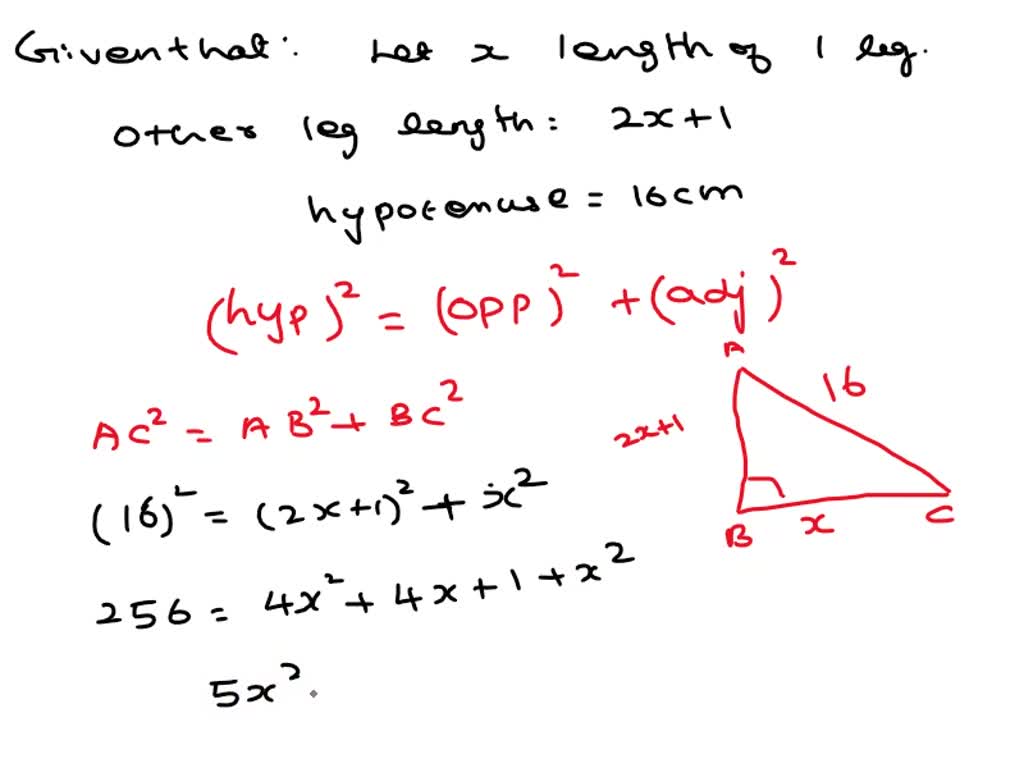 Giventhat: Let x length of 1 leg.
other leg length: 2x+1
hypotenuse = 16cm
(hyp)² = (opp)² + (adj)²
A
16
AC² = AB² + BC²
2x+1
(16)² = (2x+1)² + x²
B x C
256 = 4x² + 4x + 1 + x²
5x²